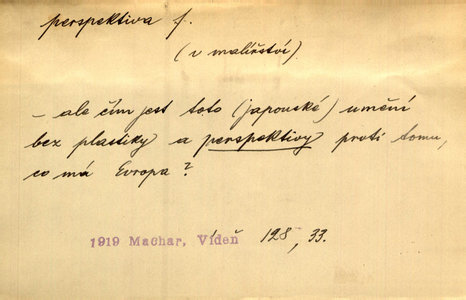 perspektiva f.
(v malířství)
– ale čím jest toto (japonské) umění
bez plastiky a perspektivy proti tomu,
co má Evropa?
1919 Machar, Vídeň 128, 33.